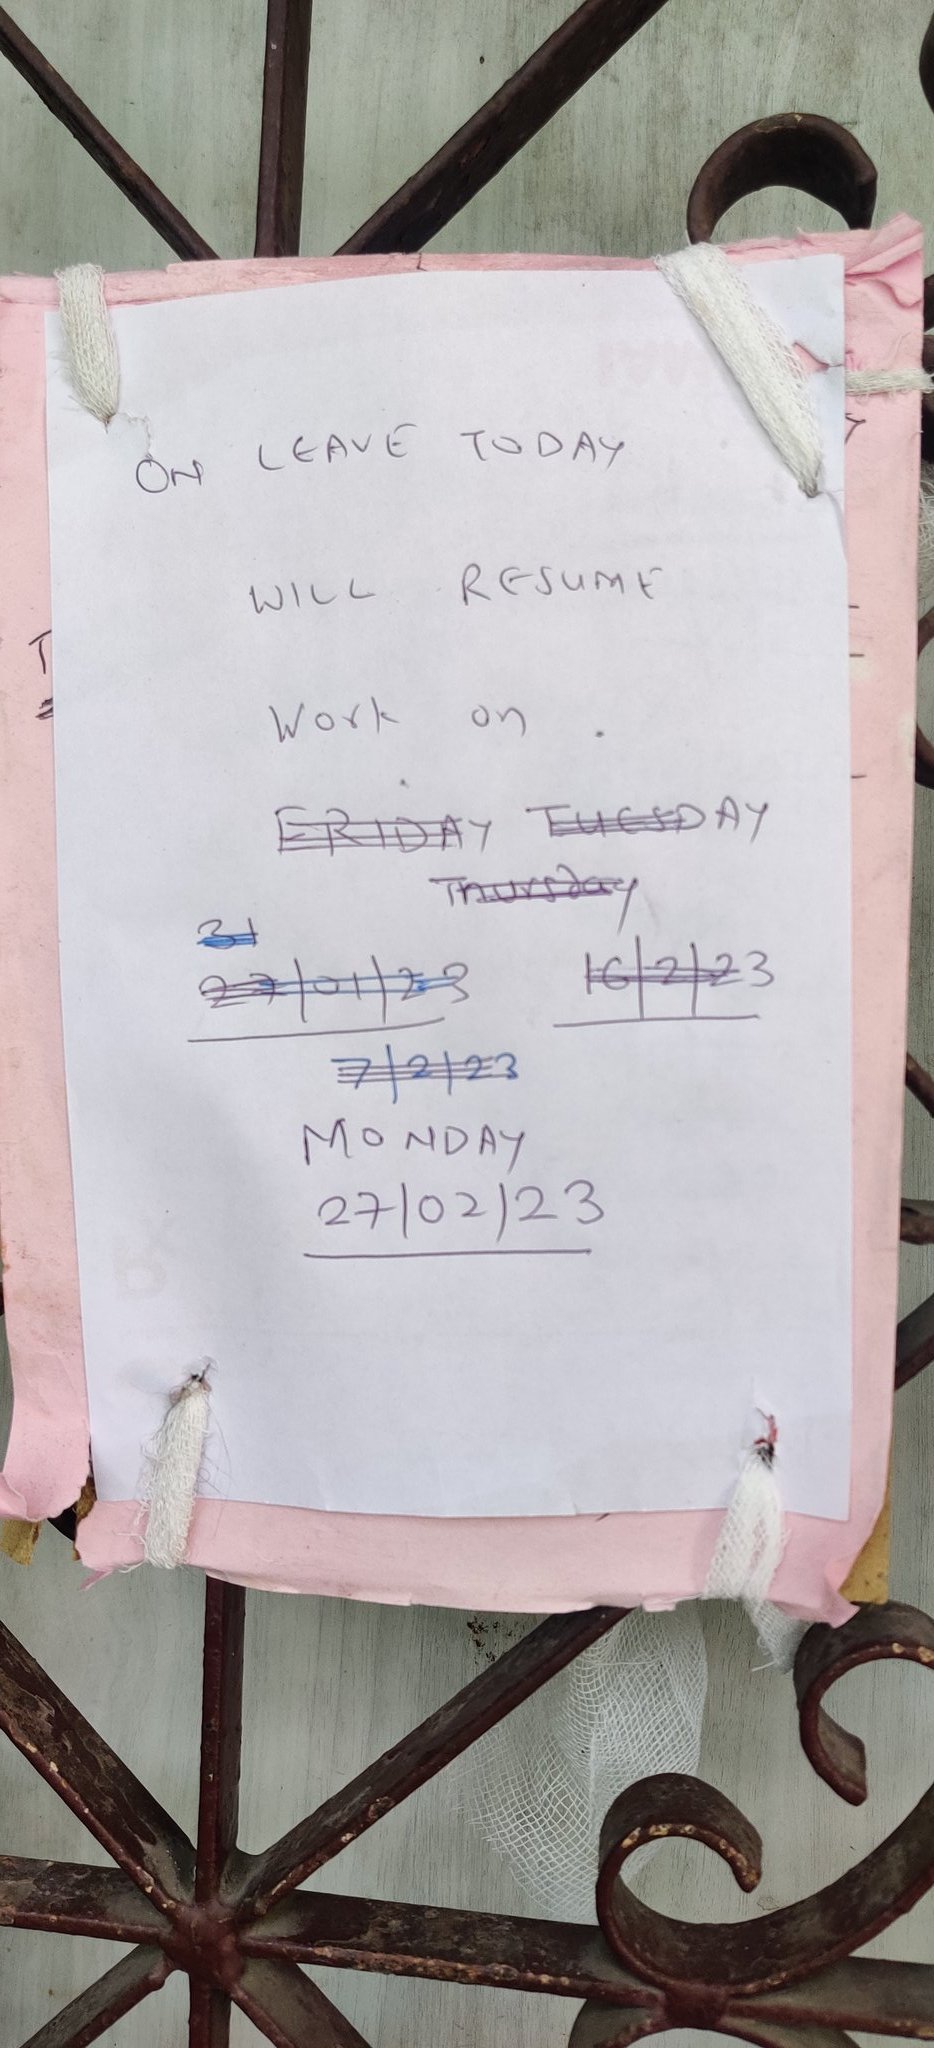 ON LEAVE TODAY
WILL RESUME
Work on .
FRIDAY TUESDAY
Thursday
31
27/01/23 16/2/23
7/2/23
MONDAY
27/02/23